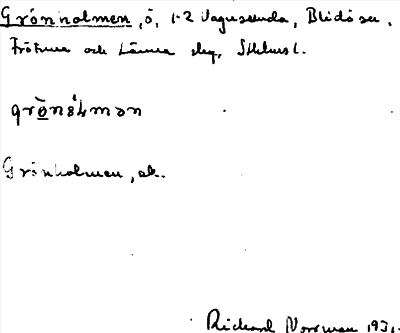 Grönholmen, ö, 1-2 Vagnsunda, Blidö sn,
Frötuna och Länna skg, Sthlms l.
grò̱nólmən
Grönholmen, ek.
Richard Norrman 1931.